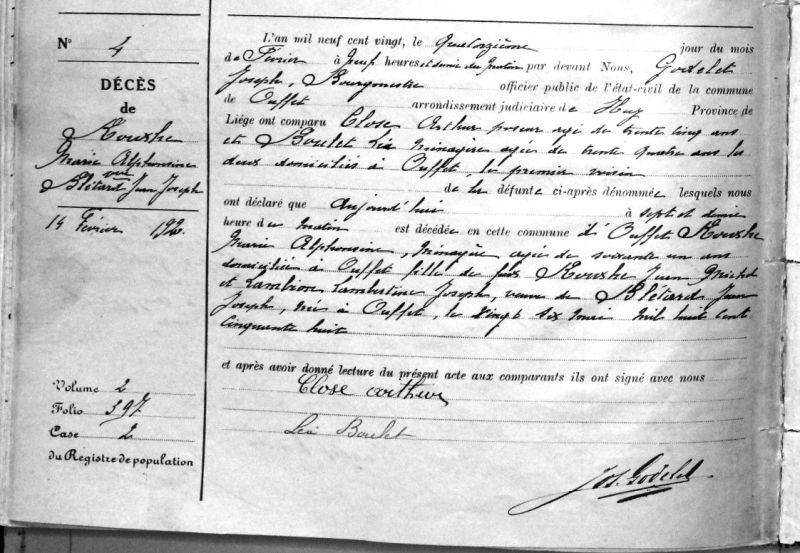 N° 4
DÉCÈS
de
Rouxhe
Marie Alphonsine
vve
Blétard Jean Joseph
14 Février 1920.
Volume 2
Folio 397
Case 2
du Registre de population
L'an mil neuf cent vingt, le Quatorzième jour du mois
de Février à neuf heures et demie du matin par devant Nous, Godelet
Joseph, Bourgmestre officier public de l'état-civil de la commune
de Ouffet arrondissement judiciaire de Huy Province de
Liége ont comparu Close Arthur poseur agé de trente cinq ans
et Boulet Léa ménagère agée de trente quatre ans les
deux domiciliés à Ouffet, le premier voisin
de la défunte ci-après dénommée lesquels nous
ont déclaré que aujourd'hui à sept et demie
heure du matin est décédée en cette commune d' Ouffet Rouxhe
Marie Alphonsine, ménagère agée de soixante un ans
domiciliée à Ouffet fille de feus Rouxhe Jean Michel
et Lambion Lambertine Joseph, veuve de Blétard Jean
Joseph, né à Ouffet, le vingt six mai mil huit cent
cinquante huit
et après avoir donné lecture du présent acte aux comparants ils ont signé avec nous
Close arthur
Léa Boulet
Jos. Godelet